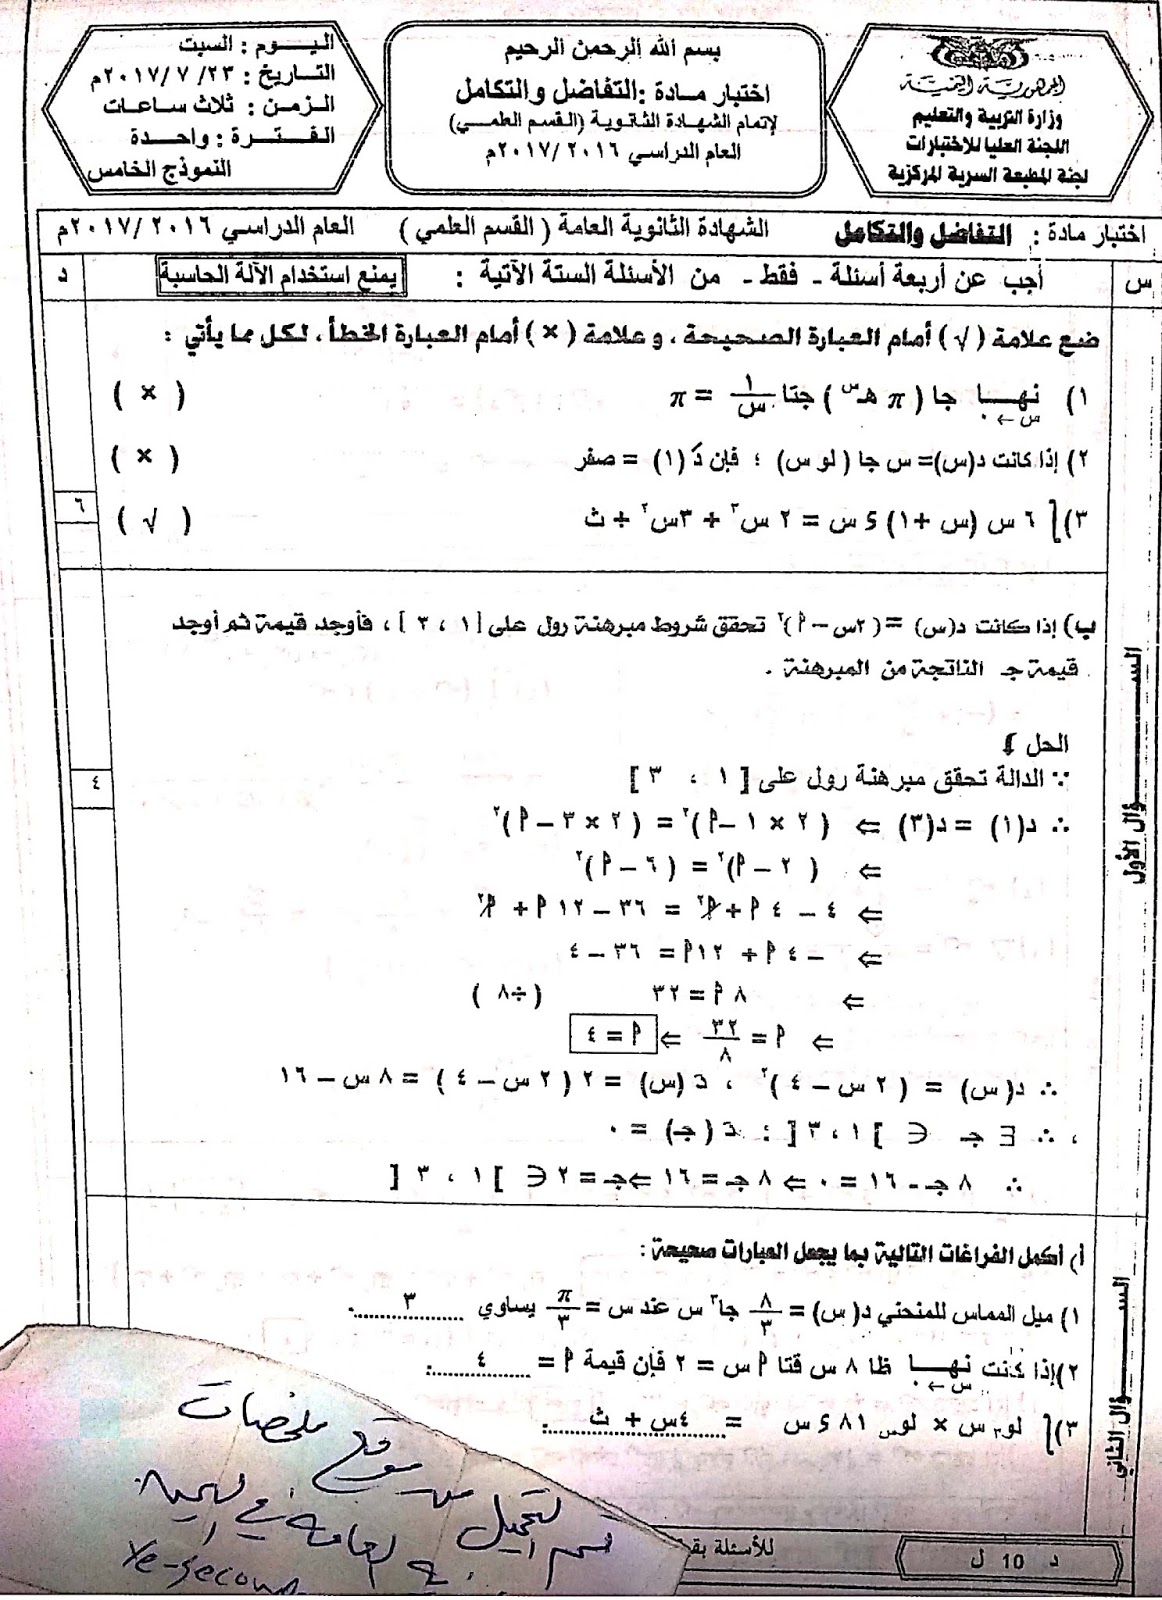 الجمهورية اليمنية
وزارة التربية والتعليم
اللجنة العليا للاختبارات
لجنة المطبعة السرية المركزية
بسم الله الرحمن الرحيم
اختبار مادة : التفاضل والتكامل
لإتمام الشهادة الثانوية (القسم العلمي)
العام الدراسي ٢٠١٦ /٢٠١٧م
اليوم : السبت
التاريخ : ٢٣/ ٧ /٢٠١٧م
الزمن : ثلاث ساعات
الفترة : واحدة
النموذج الخامس
اختبار مادة : التفاضل والتكامل الشهادة الثانوية العامة ( القسم العلمي ) العام الدراسي ٢٠١٦ /٢٠١٧م
س أجب عن أربعة أسئلة - فقط - من الأسئلة الستة الآتية : يمنع استخدام الآلة الحاسبة د
السؤال الأول
ضع علامة ( √ ) أمام العبارة الصحيحة ، و علامة ( × ) أمام العبارة الخطأ ، لكل مما يأتي :
١) نهـا س ← ٠ جا ( π هـ^س ) جتا ١/س = π ( × )
٢) إذا كانت د(س)= س جا ( لو س) ؛ فإن دَ (١) = صفر ( × )
٣) ∫ ٦ س (س +١) ء س = ٢ س^٣ + ٣س^٢ + ث ( √ )
٦
ب) إذا كانت د(س) = (٢س – أ)^٢ تحقق شروط مبرهنة رول على [ ١ ، ٣ ] ، فأوجد قيمة ثم أوجد
قيمة جـ الناتجة من المبرهنة .
الحل
∵ الدالة تحقق مبرهنة رول على [ ١ ، ٣ ]
٤
∴ د(١) = د(٣) ⇐ ( ٢ × ١ – أ)^٢ = ( ٢ × ٣ – أ)^٢
⇐ ( ٢ – أ)^٢ = ( ٦ – أ)^٢
⇐ ٤ – ٤ أ + أ^٢ = ٣٦ – ١٢ أ + أ^٢
⇐ – ٤ أ + ١٢أ = ٣٦ – ٤
⇐ ٨ أ = ٣٢ ( ÷ ٨ )
⇐ أ = ٣٢/٨ ⇐ أ = ٤
∴ د( س) = ( ٢ س – ٤ )^٢ ، دَ (س) = ٢ ( ٢ س – ٤ ) = ٨ س – ١٦
، ∴ ∃ جـ ∈ ] ١ ، ٣ [ : دَ ( جـ) = ٠
∴ ٨ جـ - ١٦ = ٠ ⇐ ٨ جـ = ١٦ ⇐ جـ = ٢ ∈ ] ١ ، ٣ [
السؤال الثاني
أ) أكمل الفراغات التالية بما يجعل العبارات صحيحة :
١) ميل المماس للمنحني د( س) = ٨/٣ جا^٣ س عند س = π/٣ يساوي ٣.
٢)إذا كانت نهـا س ← ٠ ظا ٨ س قتا أ س = ٢ فإن قيمة أ = ٤.
٣) ∫ لو٣ س × لوس ٨١ ء س = ٤س + ث.
د 10 ل
للأسئلة بق
تم التحميل من موقع ملخصات
العامة في اليمن
Ye-secon